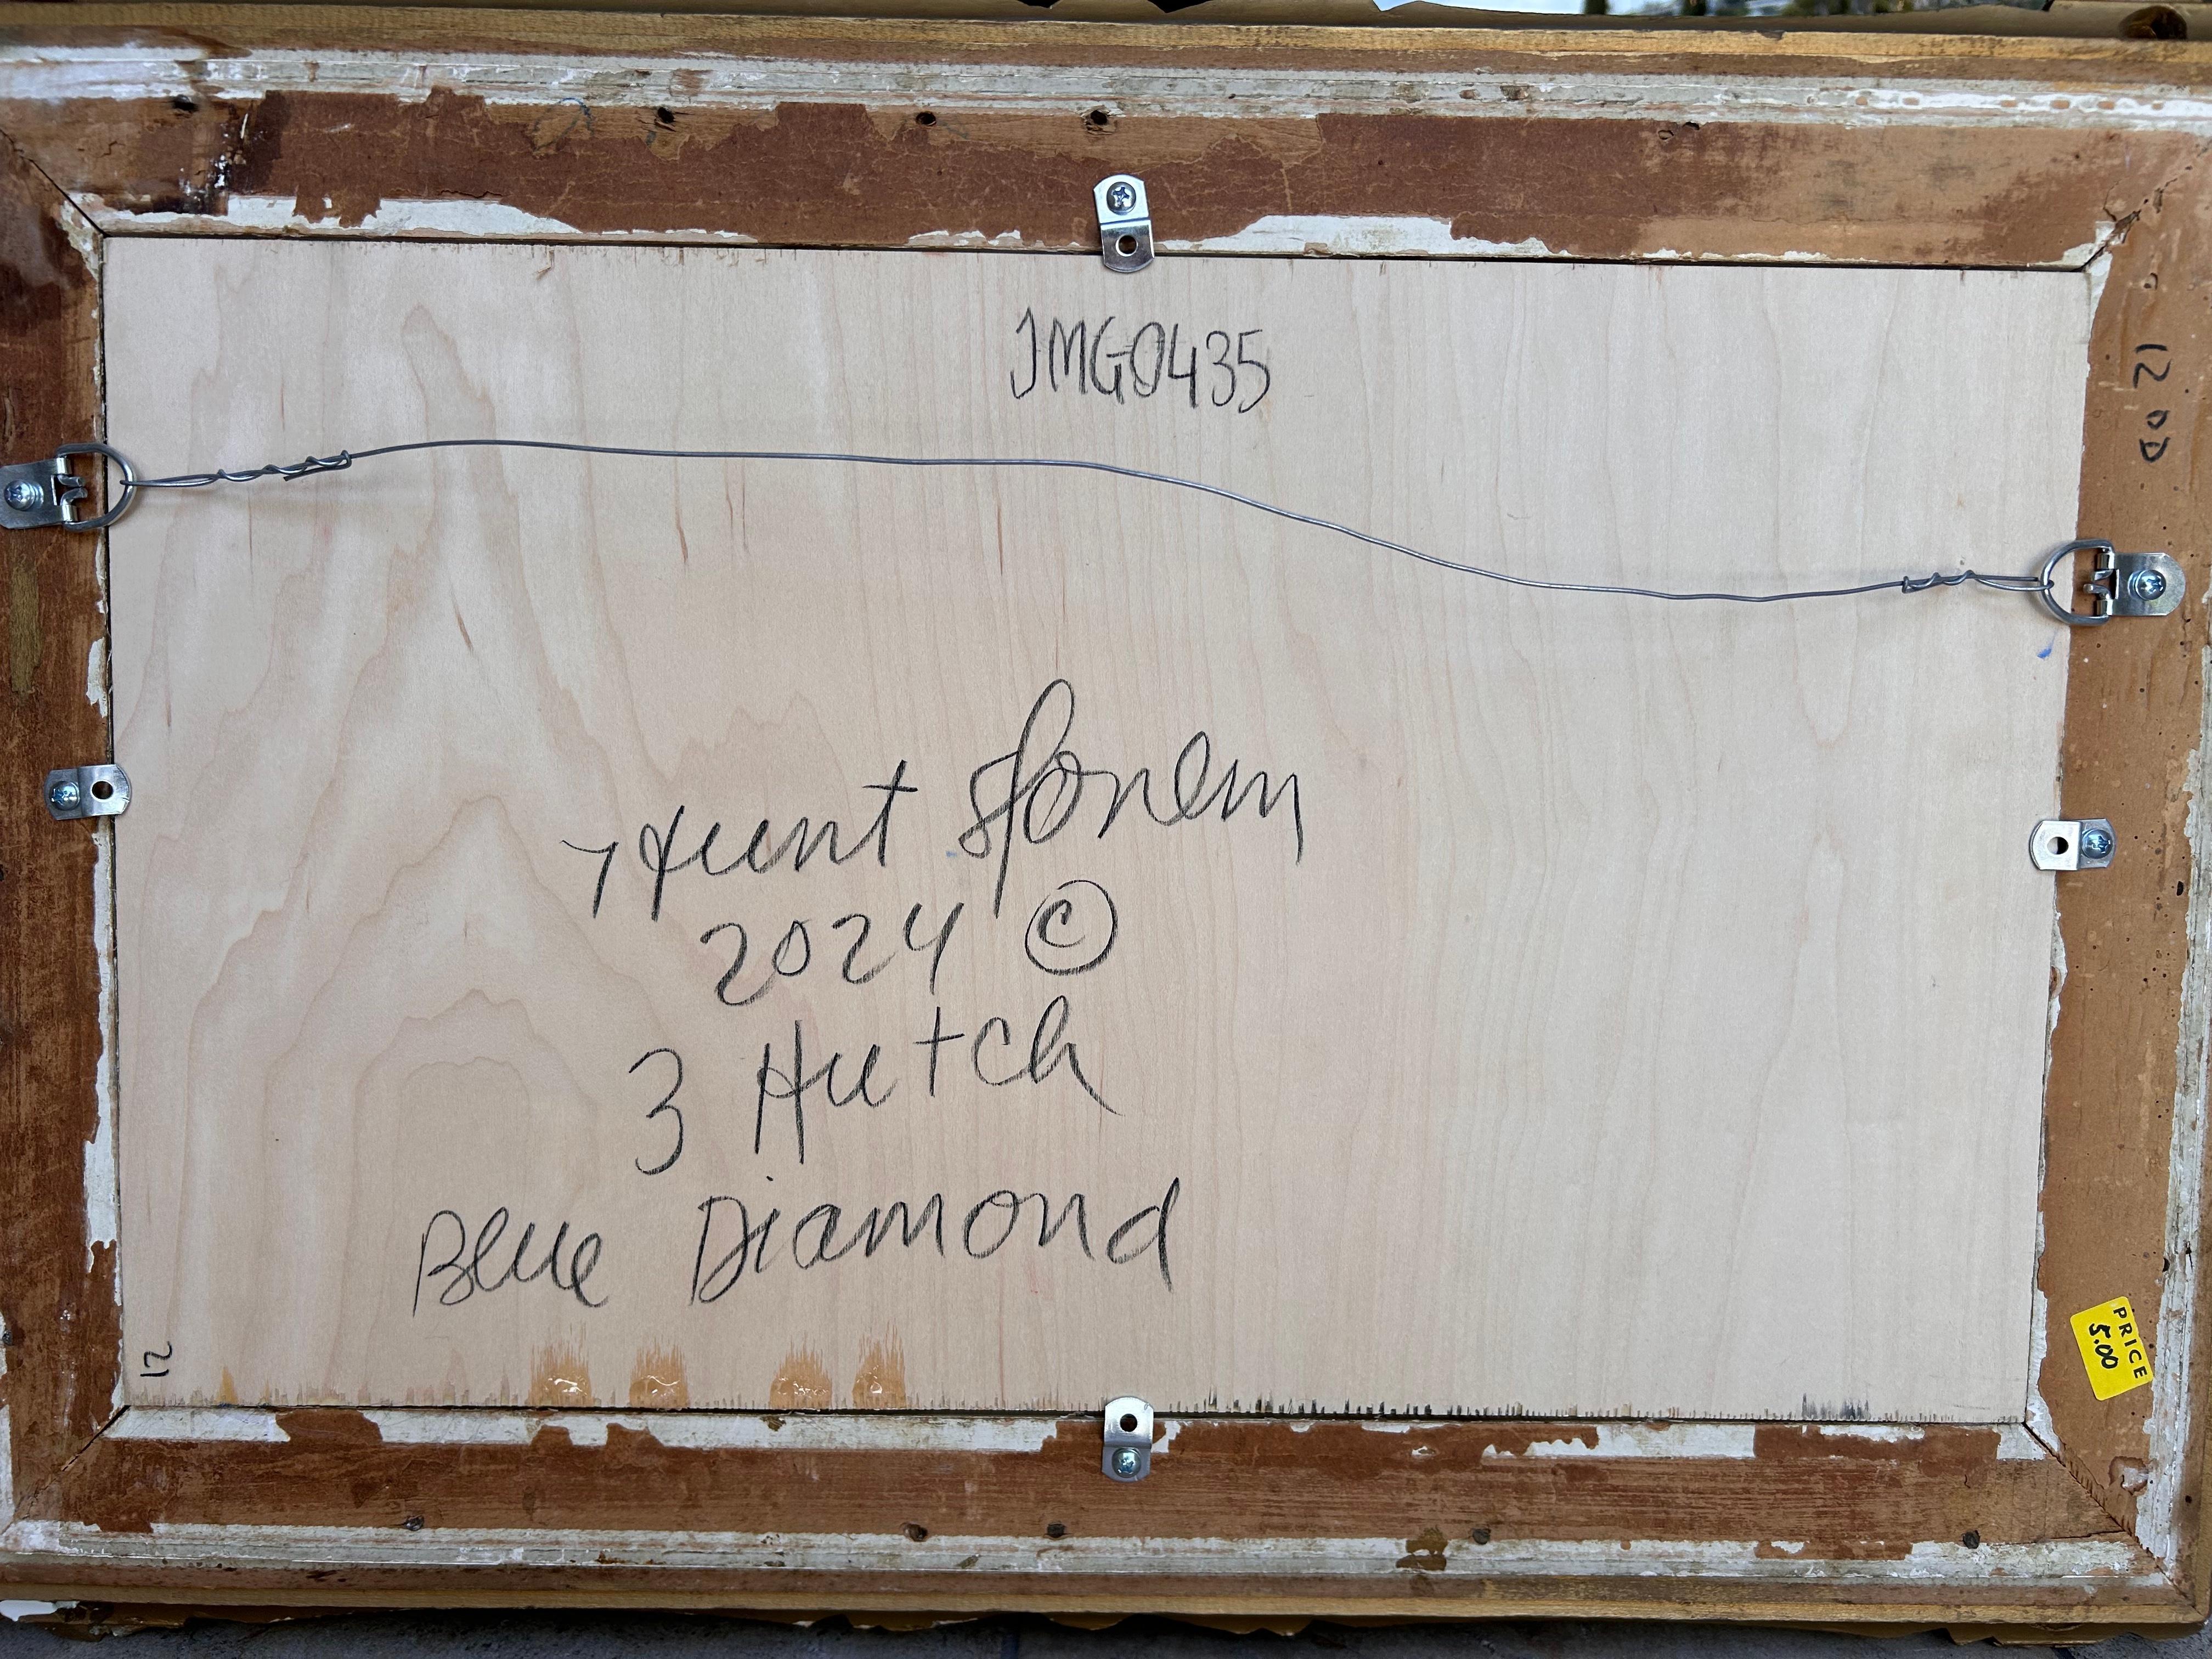 JMG0435
120D
Hunt Slonem
2024 ©
3 Hutch
Blue Diamond
PRICE
5.00
12